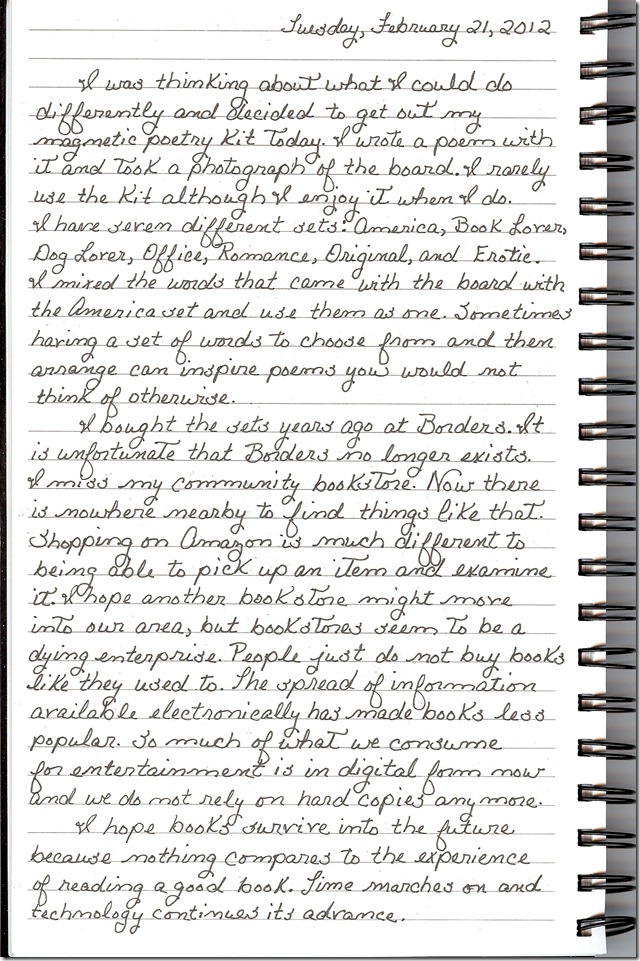 Tuesday, February 21, 2012
I was thinking about what I could do
differently and decided to get out my
magnetic poetry kit today. I wrote a poem with
it and took a photograph of the board. I rarely
use the kit although I enjoy it when I do.
I have seven different sets: America, Book Lover,
Dog Lover, Office, Romance, Original, and Erotic.
I mixed the words that came with the board with
the America set and use them as one. Sometimes
having a set of words to choose from and then
arrange can inspire poems you would not
think of otherwise.
I bought the sets years ago at Borders. It
is unfortunate that Borders no longer exists.
I miss my community bookstore. Now there
is nowhere nearby to find things like that.
Shopping on Amazon is much different to
being able to pick up an item and examine
it. I hope another bookstore might move
into our area, but bookstores seem to be a
dying enterprise. People just do not buy books
like they used to. The spread of information
available electronically has made books less
popular. So much of what we consume
for entertainment is in digital form now
and we do not rely on hard copies anymore.
I hope books survive into the future
because nothing compares to the experience
of reading a good book. Time marches on and
technology continues its advance.